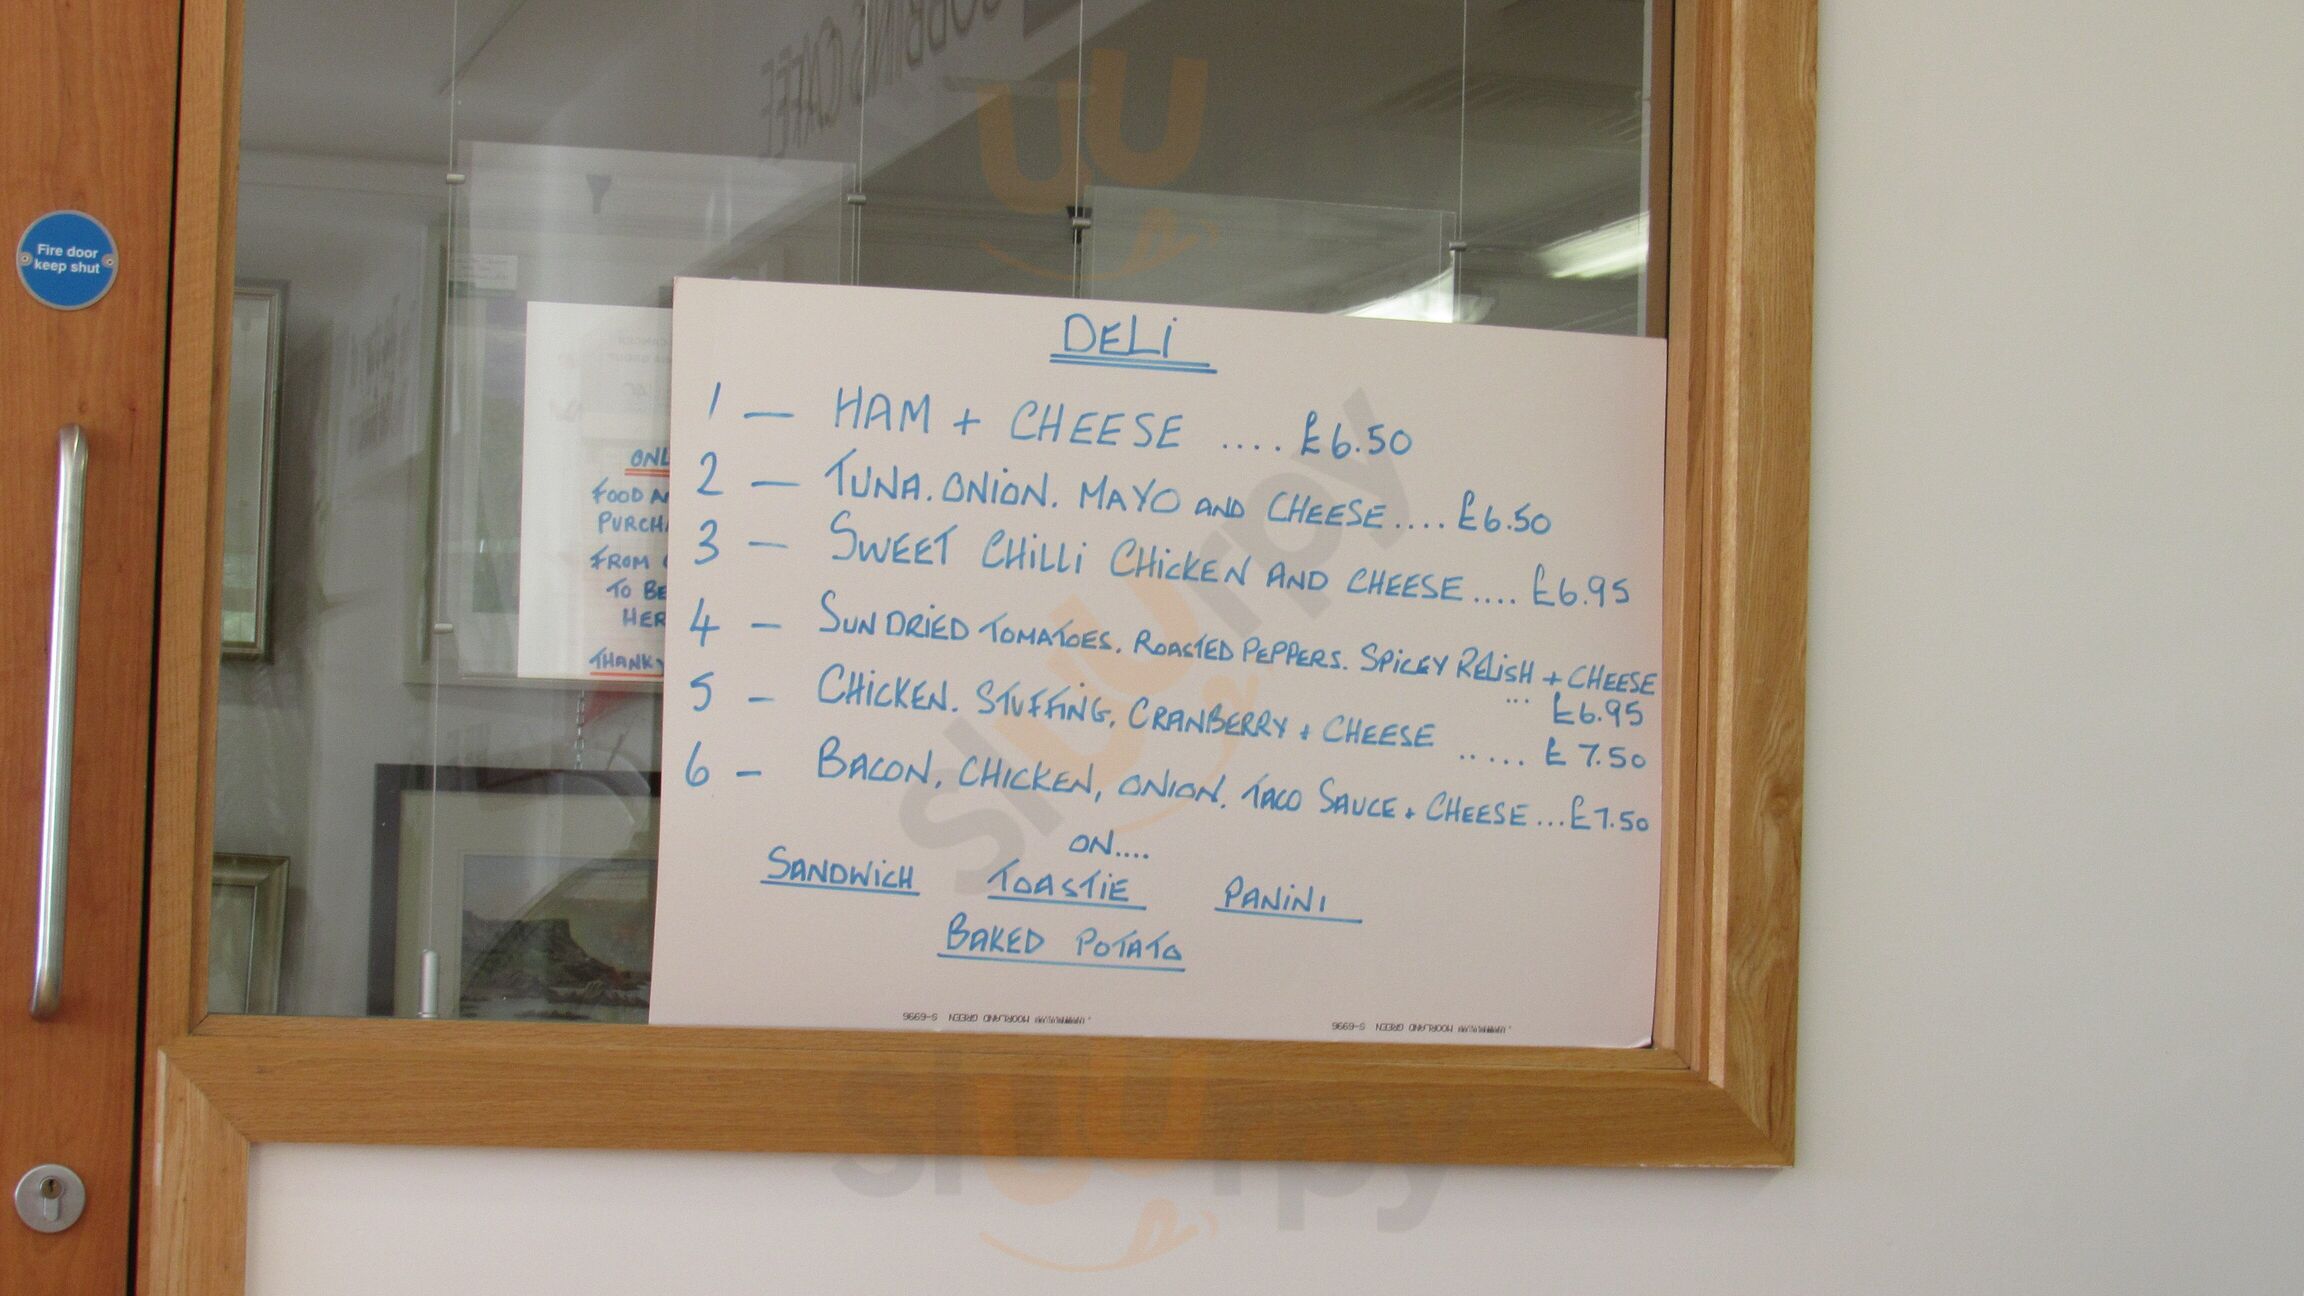 Fire door
keep shut
DELI
1 — HAM + CHEESE .... £6.50
2 — TUNA. ONION. MAYO AND CHEESE.... £6.50
3 — SWEET CHILLI CHICKEN AND CHEESE.... £6.95
4 — SUN DRIED TOMATOES. ROASTED PEPPERS. SPICEY RELISH + CHEESE
... £6.95
5 — CHICKEN. STUFFING. CRANBERRY + CHEESE ..... £7.50
6 — BACON. CHICKEN, ONION. TACO SAUCE + CHEESE...£7.50
ON....
SANDWICH TOASTIE PANINI
BAKED POTATO
FOOD
FROM
TO BE
S-6996 MOORLAND GREEN
S-6996 MOORLAND GREEN
sluurpy
sluurpy